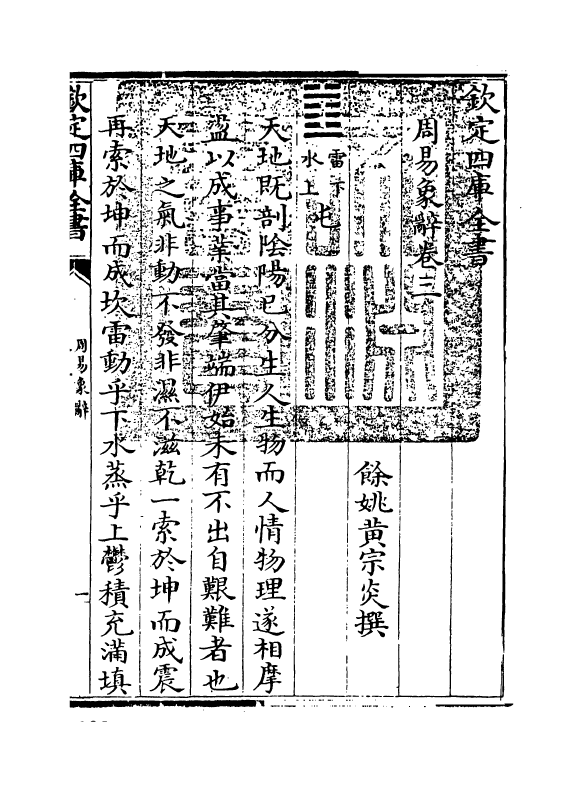 欽定四庫全書
周易象辭卷二
餘姚黃宗炎撰
䷂
雷下
水上
屯
天地既剖陰陽已分生人生物而人情物理遂相摩
盪以成事業當其肇端伊始未有不出自艱難者也
天地之氣非動不發非濕不滋乾一索於坤而成震
再索於坤而成坎雷動乎下水蒸乎上鬱積充滿填
欽定四庫全書
周易象辭
一